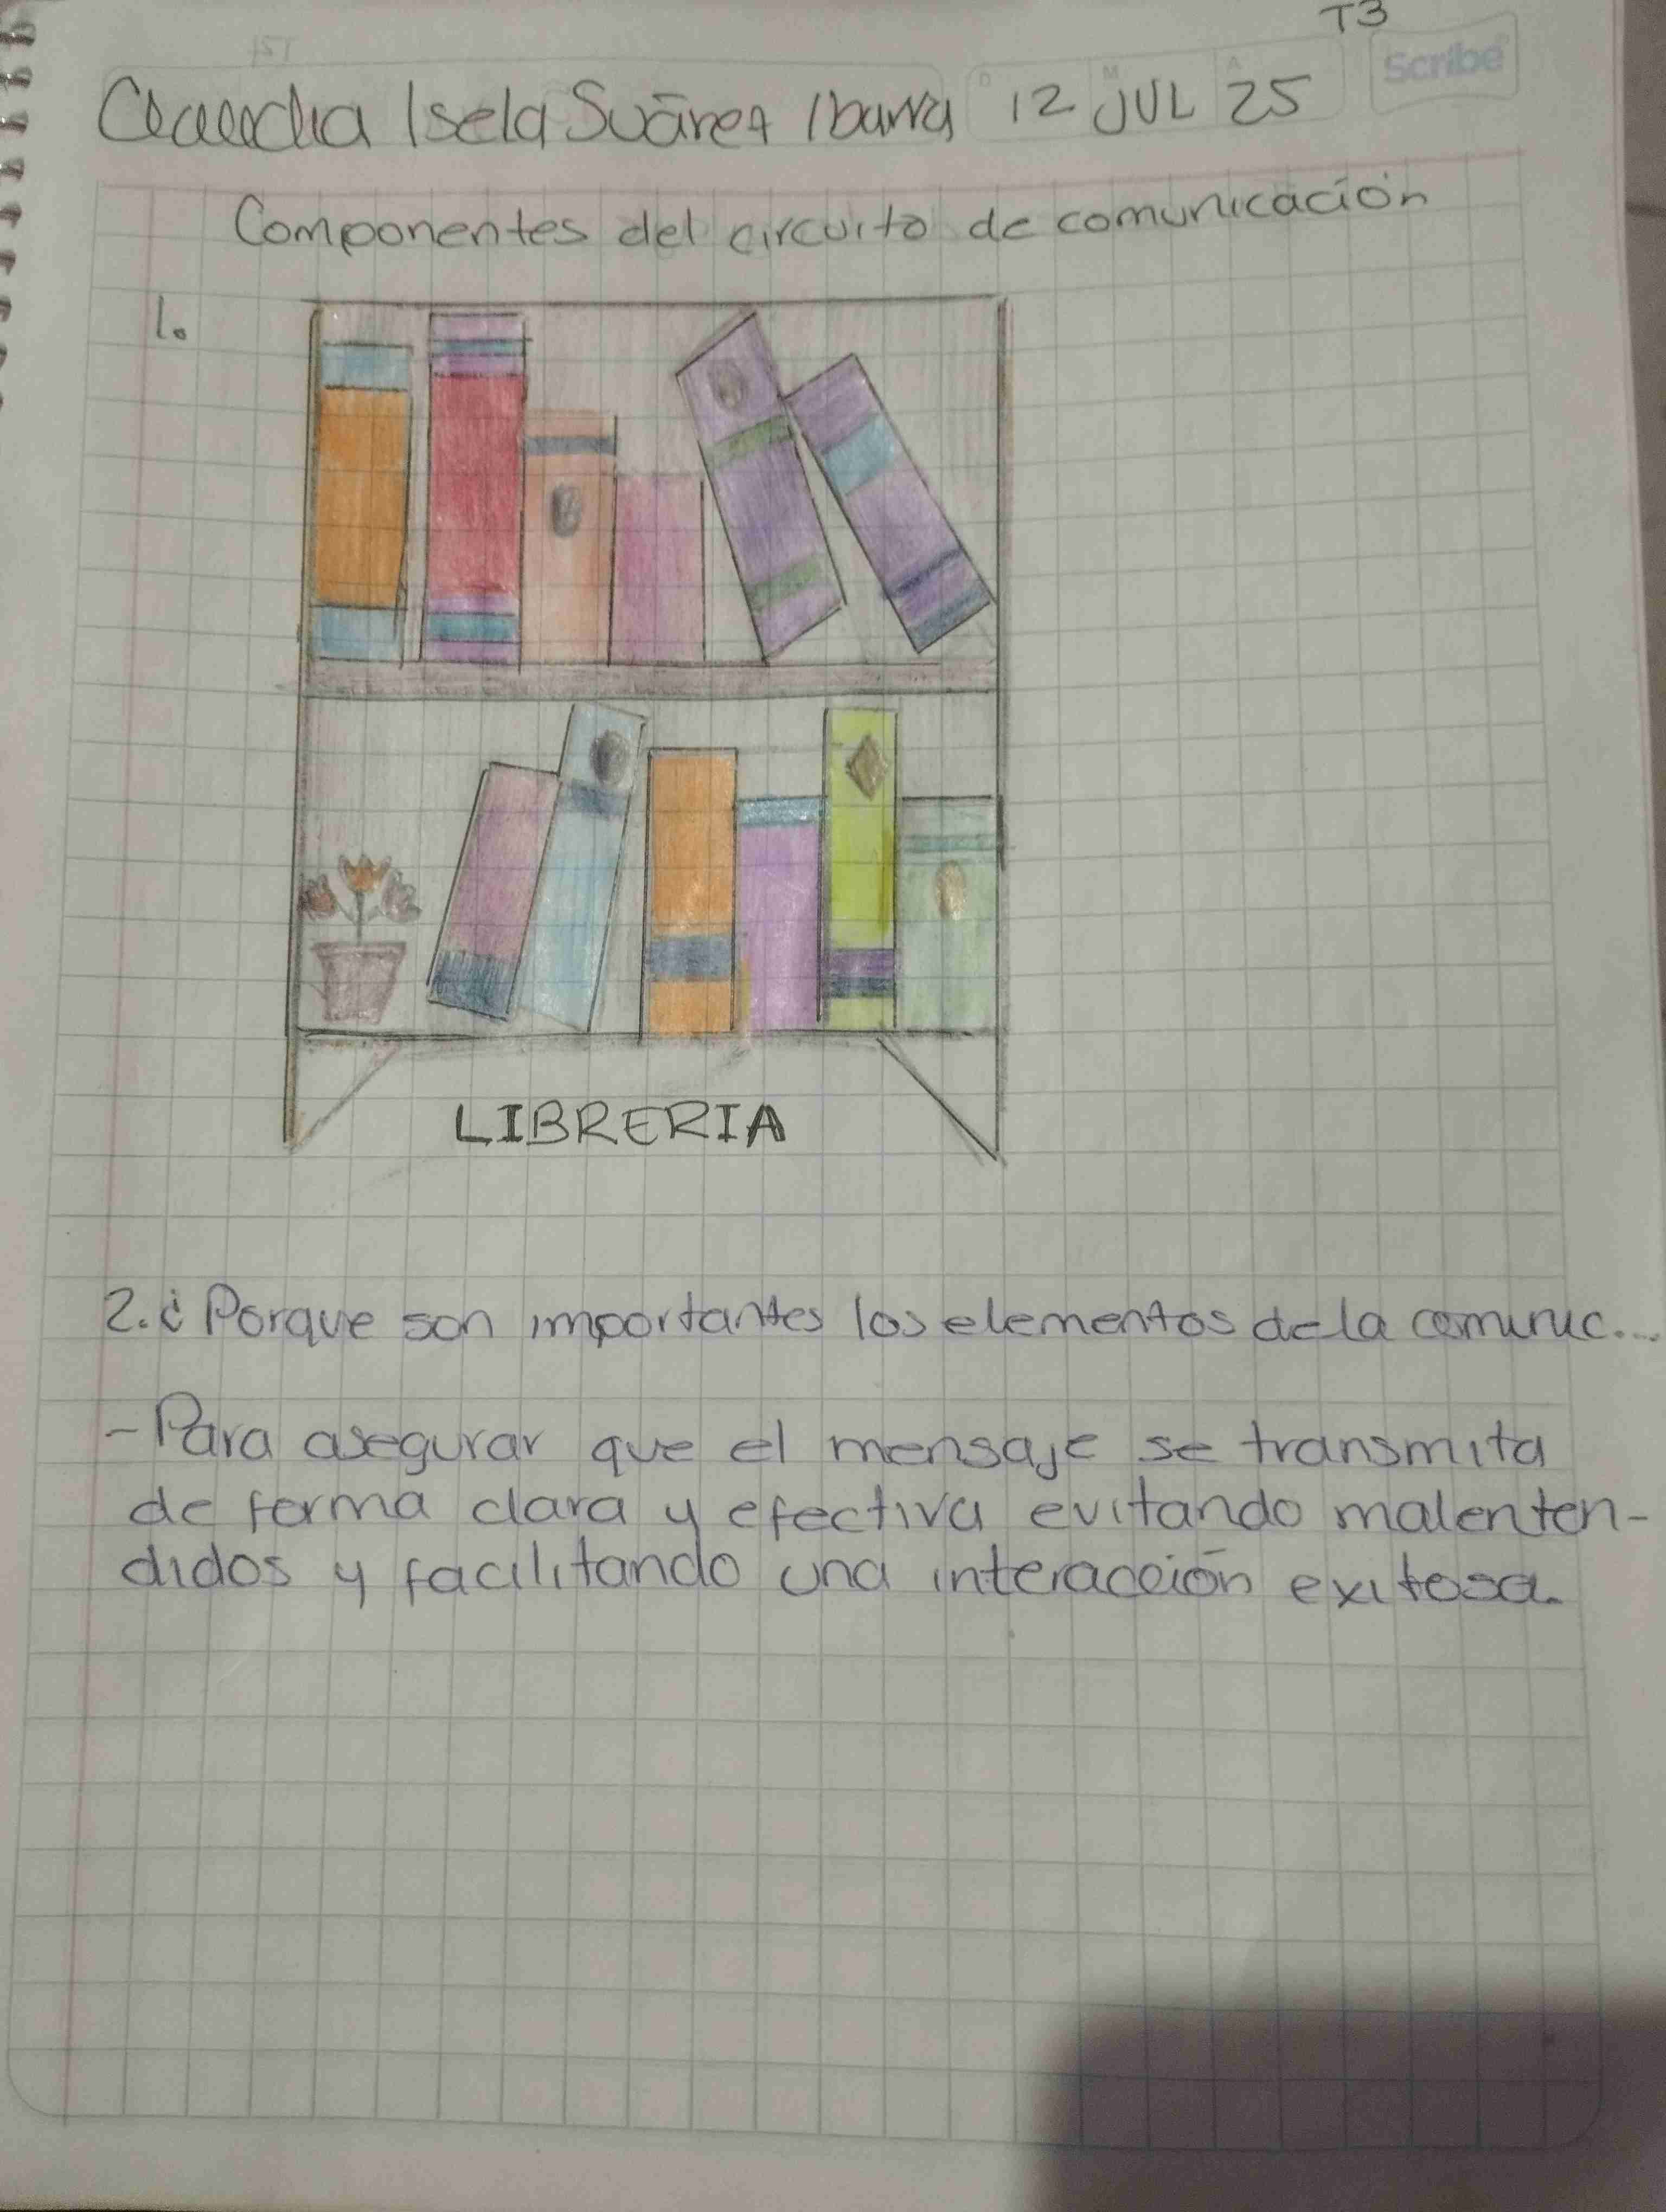 T3
Scribe
Claudia Isela Suárez Ibarra 12 JUL 25
D M A
Componentes del circuito de comunicación
1.
LIBRERIA
2. ¿Porque son importantes los elementos de la comunic....
- Para asegurar que el mensaje se transmita
de forma clara y efectiva evitando malenten-
didos y facilitando una interacción exitosa.